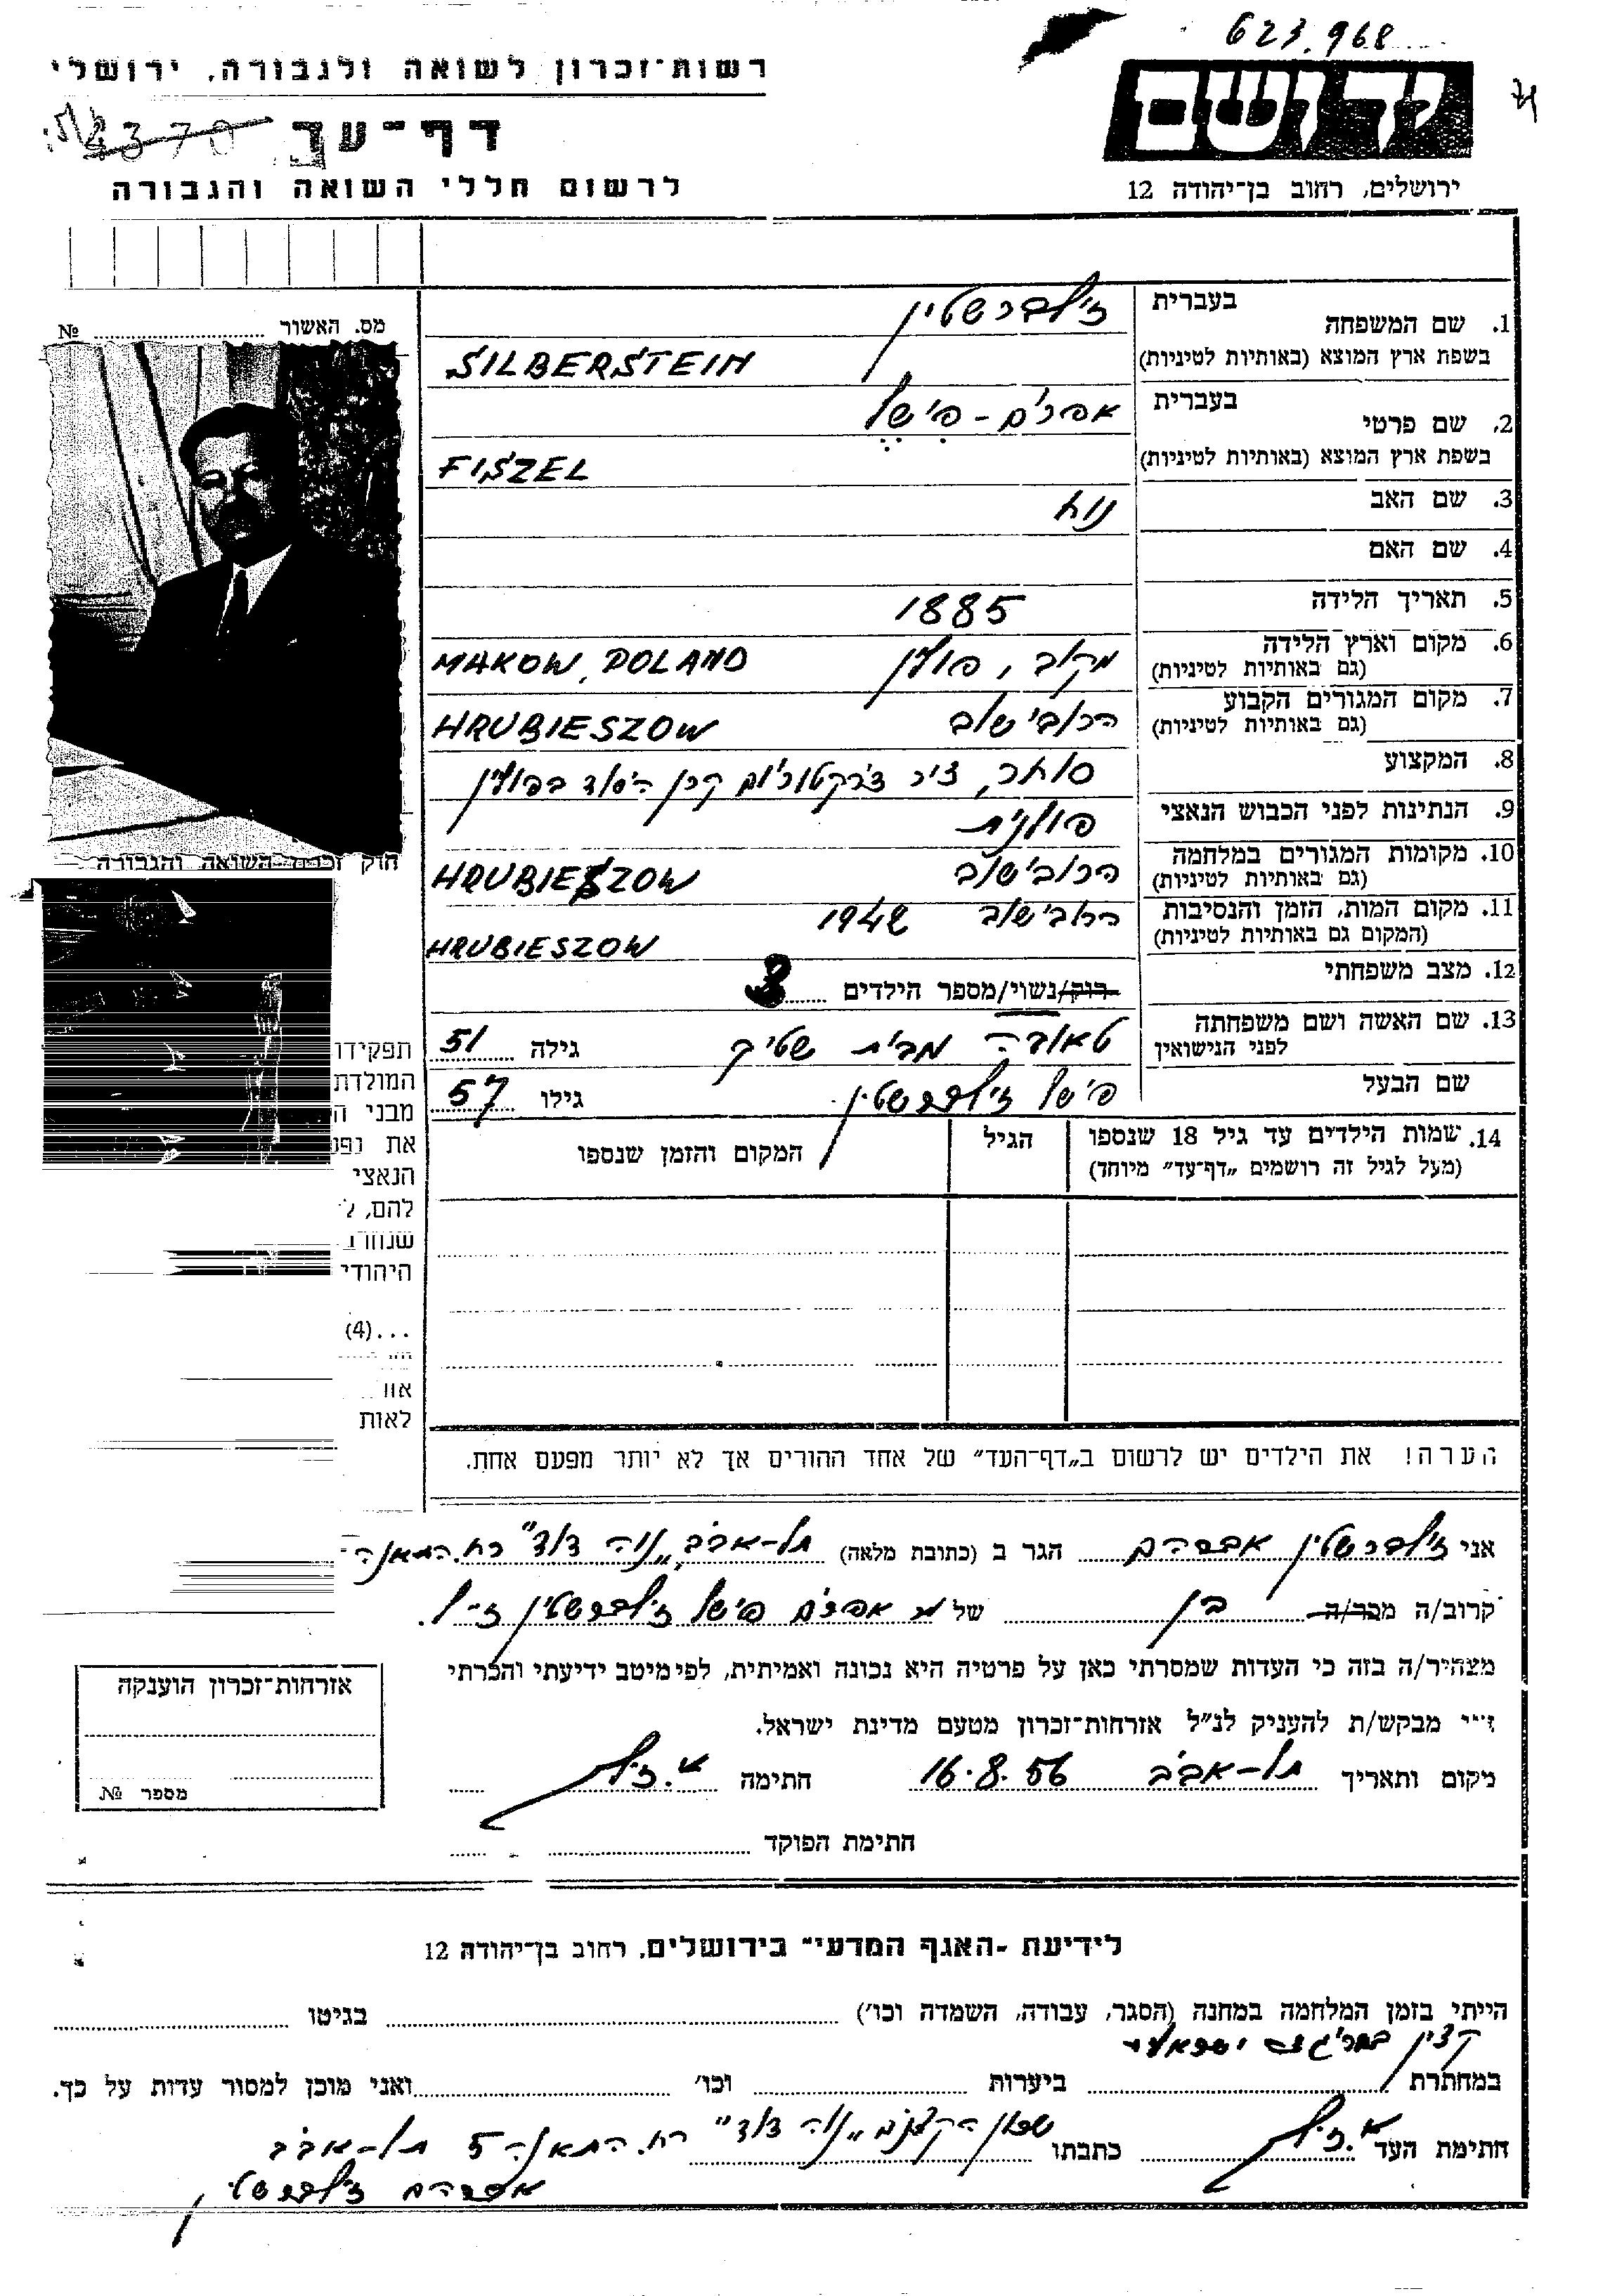 623.968
רשות־זכרון לשואה ולגבורה, ירושלי
יד ושם
4370
דף־עד
לרשום חללי השואה והגבורה
ירושלים, רחוב בן־יהודה 12
מס. האשור № 
1. שם המשפחה בעברית זילברשטיין
בשפת ארץ המוצא (באותיות לטיניות) SILBERSTEIN
2. שם פרטי בעברית אפרים - פישל
בשפת ארץ המוצא (באותיות לטיניות) FISZEL
3. שם האב נוח
4. שם האם
5. תאריך הלידה 1885
6. מקום וארץ הלידה מקוב, פולין MAKOW, POLAND
(גם באותיות לטיניות)
7. מקום המגורים הקבוע הרובישוב HRUBIESZOW
(גם באותיות לטיניות)
8. המקצוע סוחר, ציר דירקטוריום קרן היסוד בפולין
9. הנתינות לפני הכבוש הנאצי פולנית
10. מקומות המגורים במלחמה הרובישוב HRUBIESZOW
(גם באותיות לטיניות)
11. מקום המות, הזמן והנסיבות הרובישוב 1942
(המקום גם באותיות לטיניות) HRUBIESZOW
12. מצב משפחתי רוק/נשוי/מספר הילדים 3
13. שם האשה ושם משפחתה לפני הנישואין טאובה מבית שטיק גילה 51
שם הבעל פישל זילברשטיין גילו 57
חוק זכרון השואה והגבורה
תפקידו
המולדת
מבני ה
את נפש
הנאצי
להם, ל
שנחרב
היהודי
(4)...
לאות
14. שמות הילדים עד גיל 18 שנספו הגיל המקום והזמן שנספו
(מעל לגיל זה רושמים „דף־עד״ מיוחד)
הערה! את הילדים יש לרשום ב„דף־העד״ של אחד ההורים אך לא יותר מפעם אחת.
אני זילברשטיין אברהם הגר ב (כתובת מלאה) תל-אביב „נוה דוד״ רח. התאנה
קרוב/ה מכר/ה בן של אפרים פישל זילברשטיין ז״ל.
מצהיר/ה בזה כי העדות שמסרתי כאן על פרטיה היא נכונה ואמיתית, לפי מיטב ידיעתי והכרתי
מבקש/ת להעניק לנ״ל אזרחות־זכרון מטעם מדינת ישראל.
מקום ותאריך תל-אביב 16.8.56 חתימה א. זיל
אזרחות־זכרון הוענקה
מספר №
חתימת הפוקד
לידיעת ־האגף המדעי״ בירושלים, רחוב בן־יהודה 12
הייתי בזמן המלחמה במחנה (הסגר, עבודה, השמדה וכו׳) בגיטו
קצין בבריגדה
במחתרת ביערות וכו׳ ואני מוכן למסור עדות על כך.
חתימת העד א. זיל כתבתו שכון הקצינים „נוה דוד״ רח. התאנה 5 תל-אביב
אברהם זילברשטיין